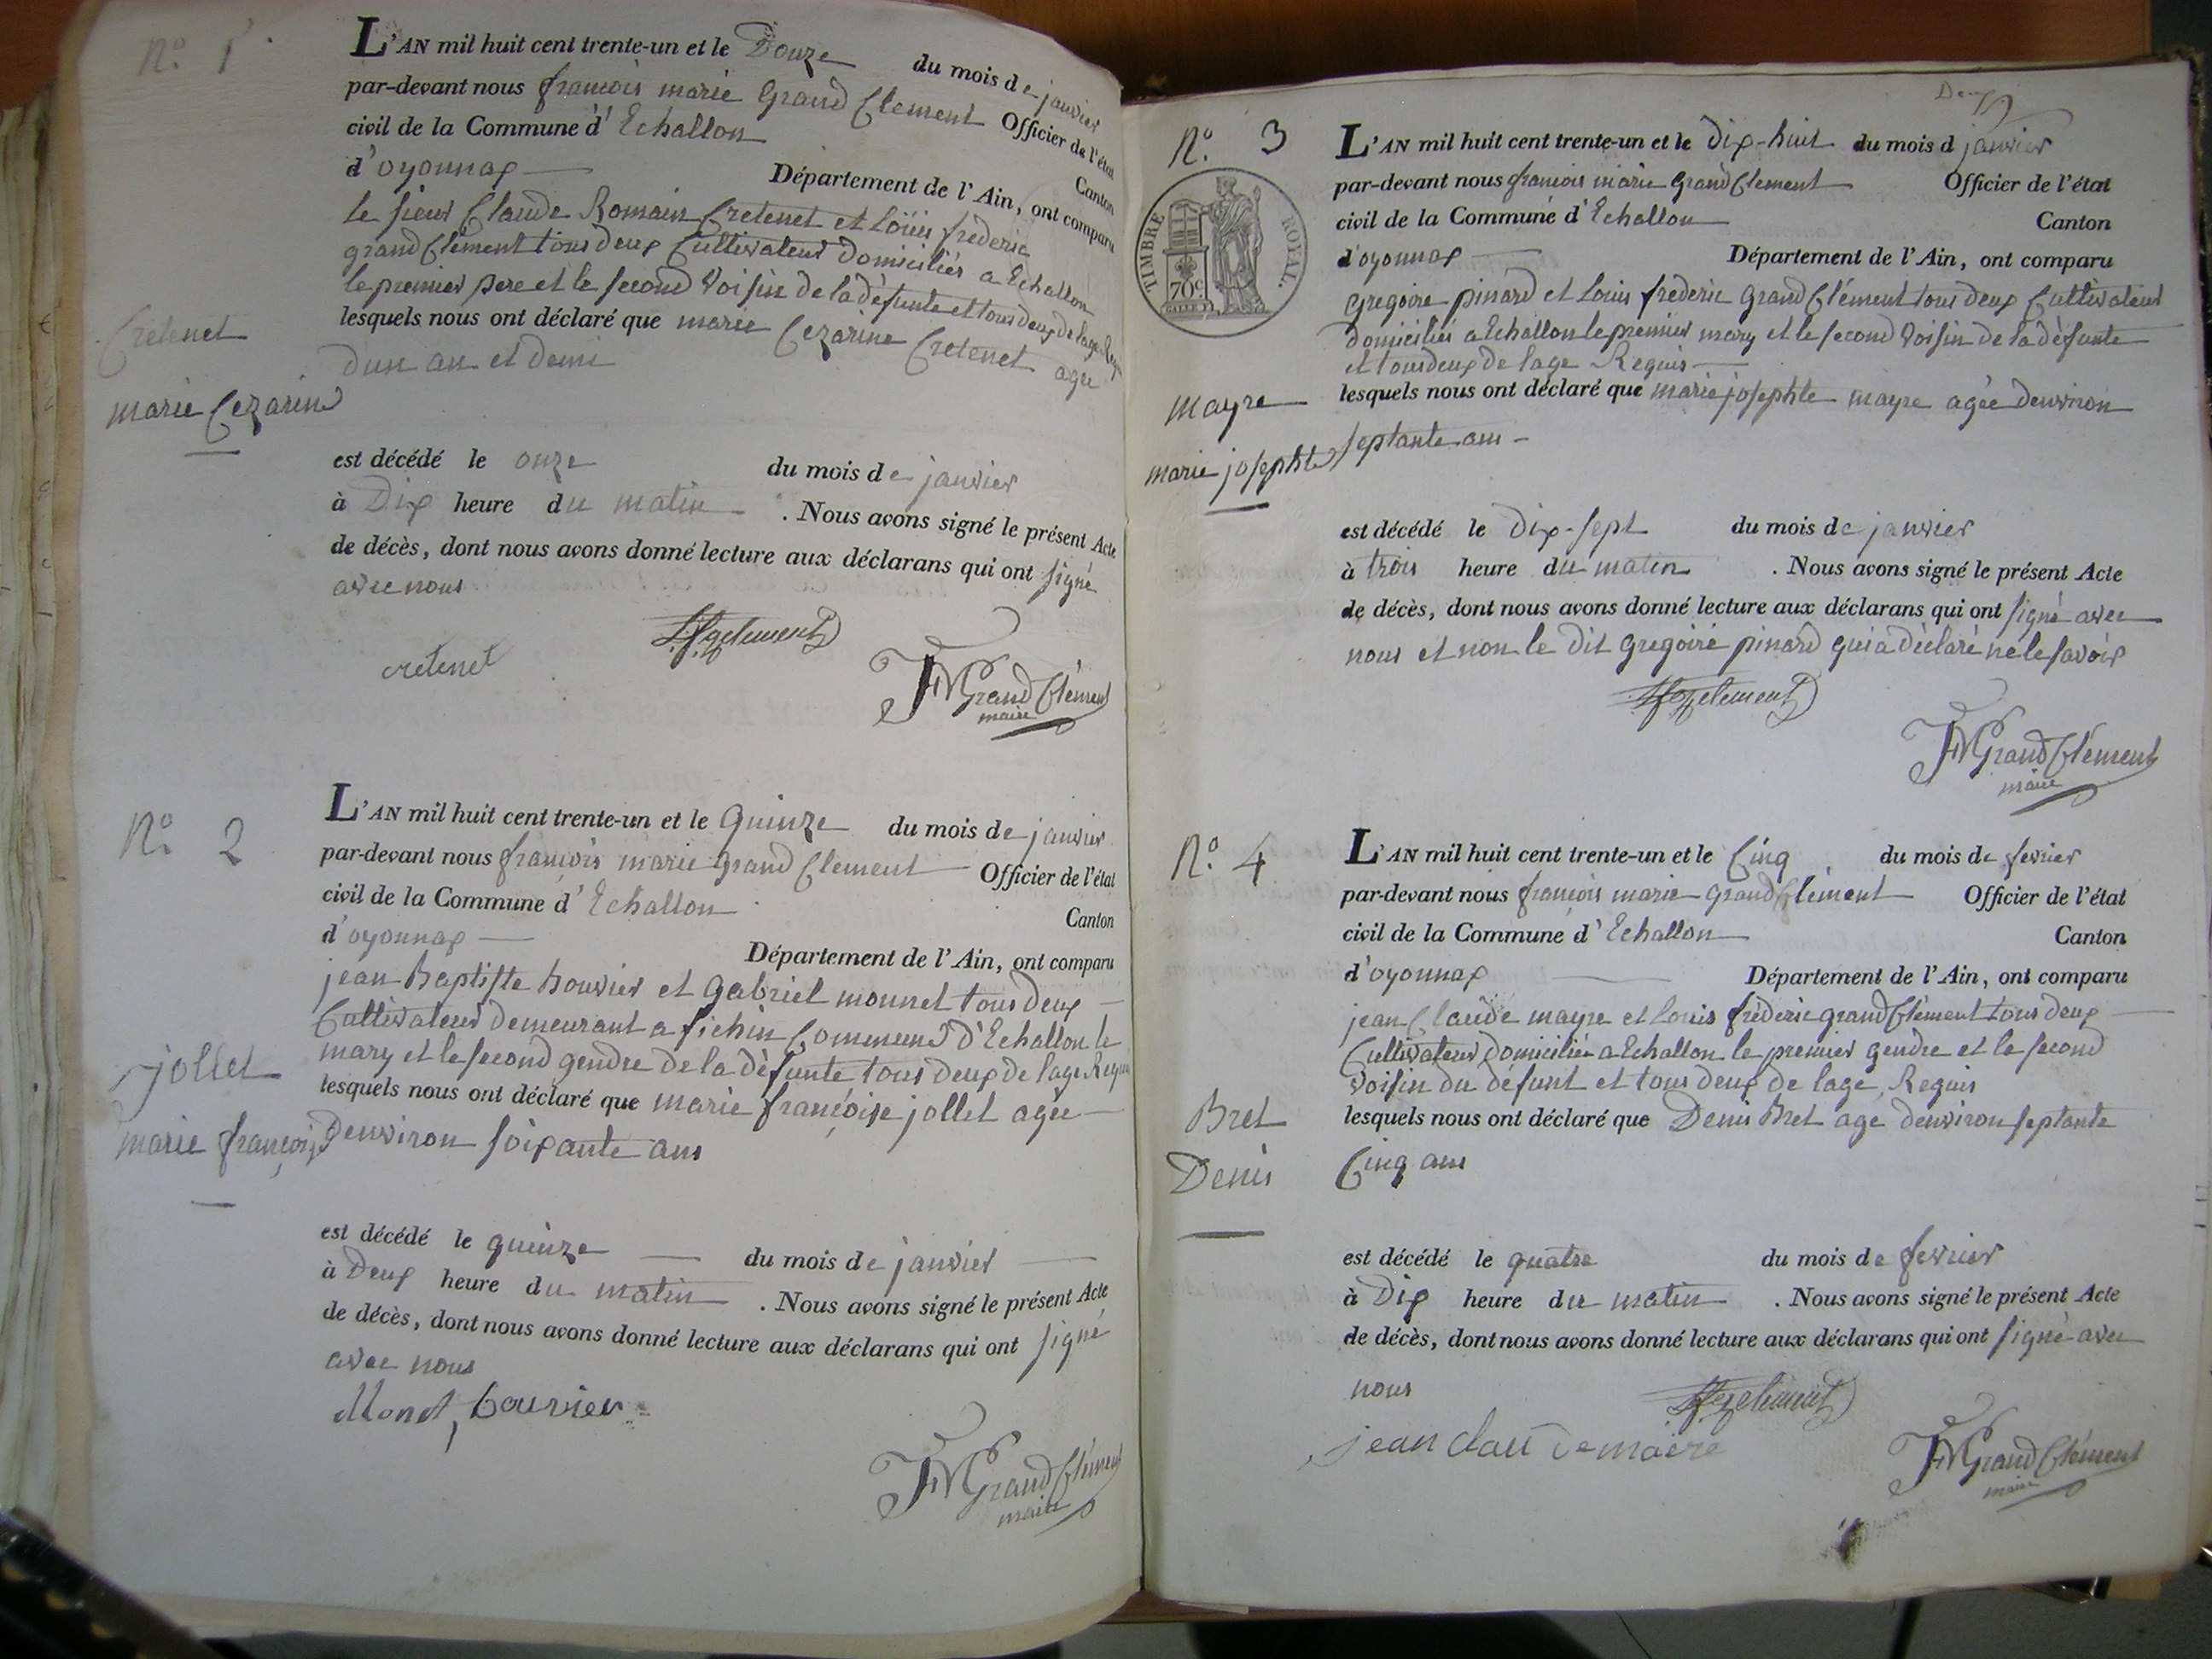 N.o 1
L'AN mil huit cent trente-un et le Douze du mois de janvier
par-devant nous françois marie Grand Clement Officier de l'état
civil de la Commune d'Echallon Canton
d'oyonnax Département de l'Ain, ont comparu
le sieur Claude Romain Cretenet et Loüis frederic
grand Clément tous deux Cultivateur Domiciliés a Echallon
le premier pere et le second Voisin de la défunte et tous deux de lage Requis
lesquels nous ont déclaré que marie Cezarine Cretenet agee
dun an et demi
Cretenet
marie Cezarine
est décédé le onze du mois de janvier
à Dix heure du matin . Nous avons signé le présent Acte
de décès, dont nous avons donné lecture aux déclarans qui ont signé
avec nous
cretenet
L.f.gclement
FMGrand Clément
maire
N.o 2
L'AN mil huit cent trente-un et le Quinze du mois de janvier
par-devant nous françois marie Grand Clement Officier de l'état
civil de la Commune d'Echallon Canton
d'oyonnax Département de l'Ain, ont comparu
jean Baptiste bouvier et Gabriel monnet tous deux
Cultivateur demeurant a fichin Commune d'Echallon le
mary et le second gendre de la défunte tous deux de lage Requis
lesquels nous ont déclaré que marie françoise jollet agée
denviron soixante ans
jollet
marie françoise
est décédé le quinze du mois de janvier
à Deux heure du matin . Nous avons signé le présent Acte
de décès, dont nous avons donné lecture aux déclarans qui ont signé
avec nous
Monet, bouvier
FMGrand Clément
maire
Deux
N.o 3
TIMBRE ROYAL.
70c
L'AN mil huit cent trente-un et le Dix-huit du mois d janvier
par-devant nous françois marie Grand Clement Officier de l'état
civil de la Commune d'Echallon Canton
d'oyonnax Département de l'Ain, ont comparu
gregoire pinard et Louis frederic Grand Clément tous deux Cultivateur
domiciliés a Echallon le premier mary et le second Voisin de la défunte
et tous deux de lage Requis
lesquels nous ont déclaré que marie josephte mayre agée denviron
septante ans
mayre
marie josephte
est décédé le Dix-sept du mois de janvier
à trois heure du matin . Nous avons signé le présent Acte
de décès, dont nous avons donné lecture aux déclarans qui ont signé avec
nous et non le dit gregoire pinard qui a déclaré ne le savoir
L.f.gclement
FMGrand Clément
maire
N.o 4
L'AN mil huit cent trente-un et le Cinq du mois de fevrier
par-devant nous françois marie Grand Clément Officier de l'état
civil de la Commune d'Echallon Canton
d'oyonnax Département de l'Ain, ont comparu
jean Claude mayre et Louis fréderic grand Clément tous deux
Cultivateur Domiciliés a Echallon le premier gendre et le second
Voisin du défunt et tous deux de lage Requis
lesquels nous ont déclaré que Denis Bret age denviron septante
Cinq ans
Bret
Denis
est décédé le quatre du mois de fevrier
à Dix heure du matin . Nous avons signé le présent Acte
de décès, dont nous avons donné lecture aux déclarans qui ont signé avec
nous
L.f.gclement
jean clau demaire
FMGrand Clément
maire